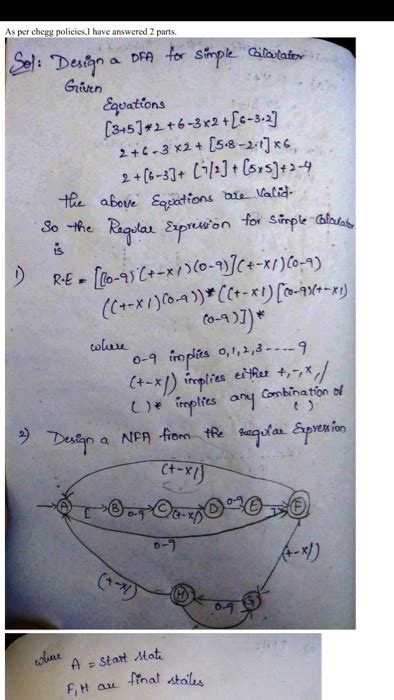 As per chegg policies,I have answered 2 parts.
Sol: Design a DFA for simple Calculator
Given
Equations
[3+5]*2+6-3×2+[6-3·2]
2+6-3×2+[5·8-2·1]×6,
2+[6-3]+[7/2]+[5×5]+2-4
the above Equations are Valid.
So the Regular Expression for simple Calculator
is
1) R.E = [(0-9)(+-×/)(0-9)](+-×/)(0-9)
((+-×/)(0-9))*((+-×/)[(0-9)(+-×/)
(0-9)])*
where
0-9 implies 0,1,2,3----9
(+-×/) implies either +,-,×,/
( )* implies any Combination of
( )
2) Design a NFA from the regular Expression
(+-×/)
A [ B 0-9 C (+-×/) D 0-9 E ] F
0-9
(+-×/) (+-×/)
H 0-9 G
where A = Start state
F, H are final states